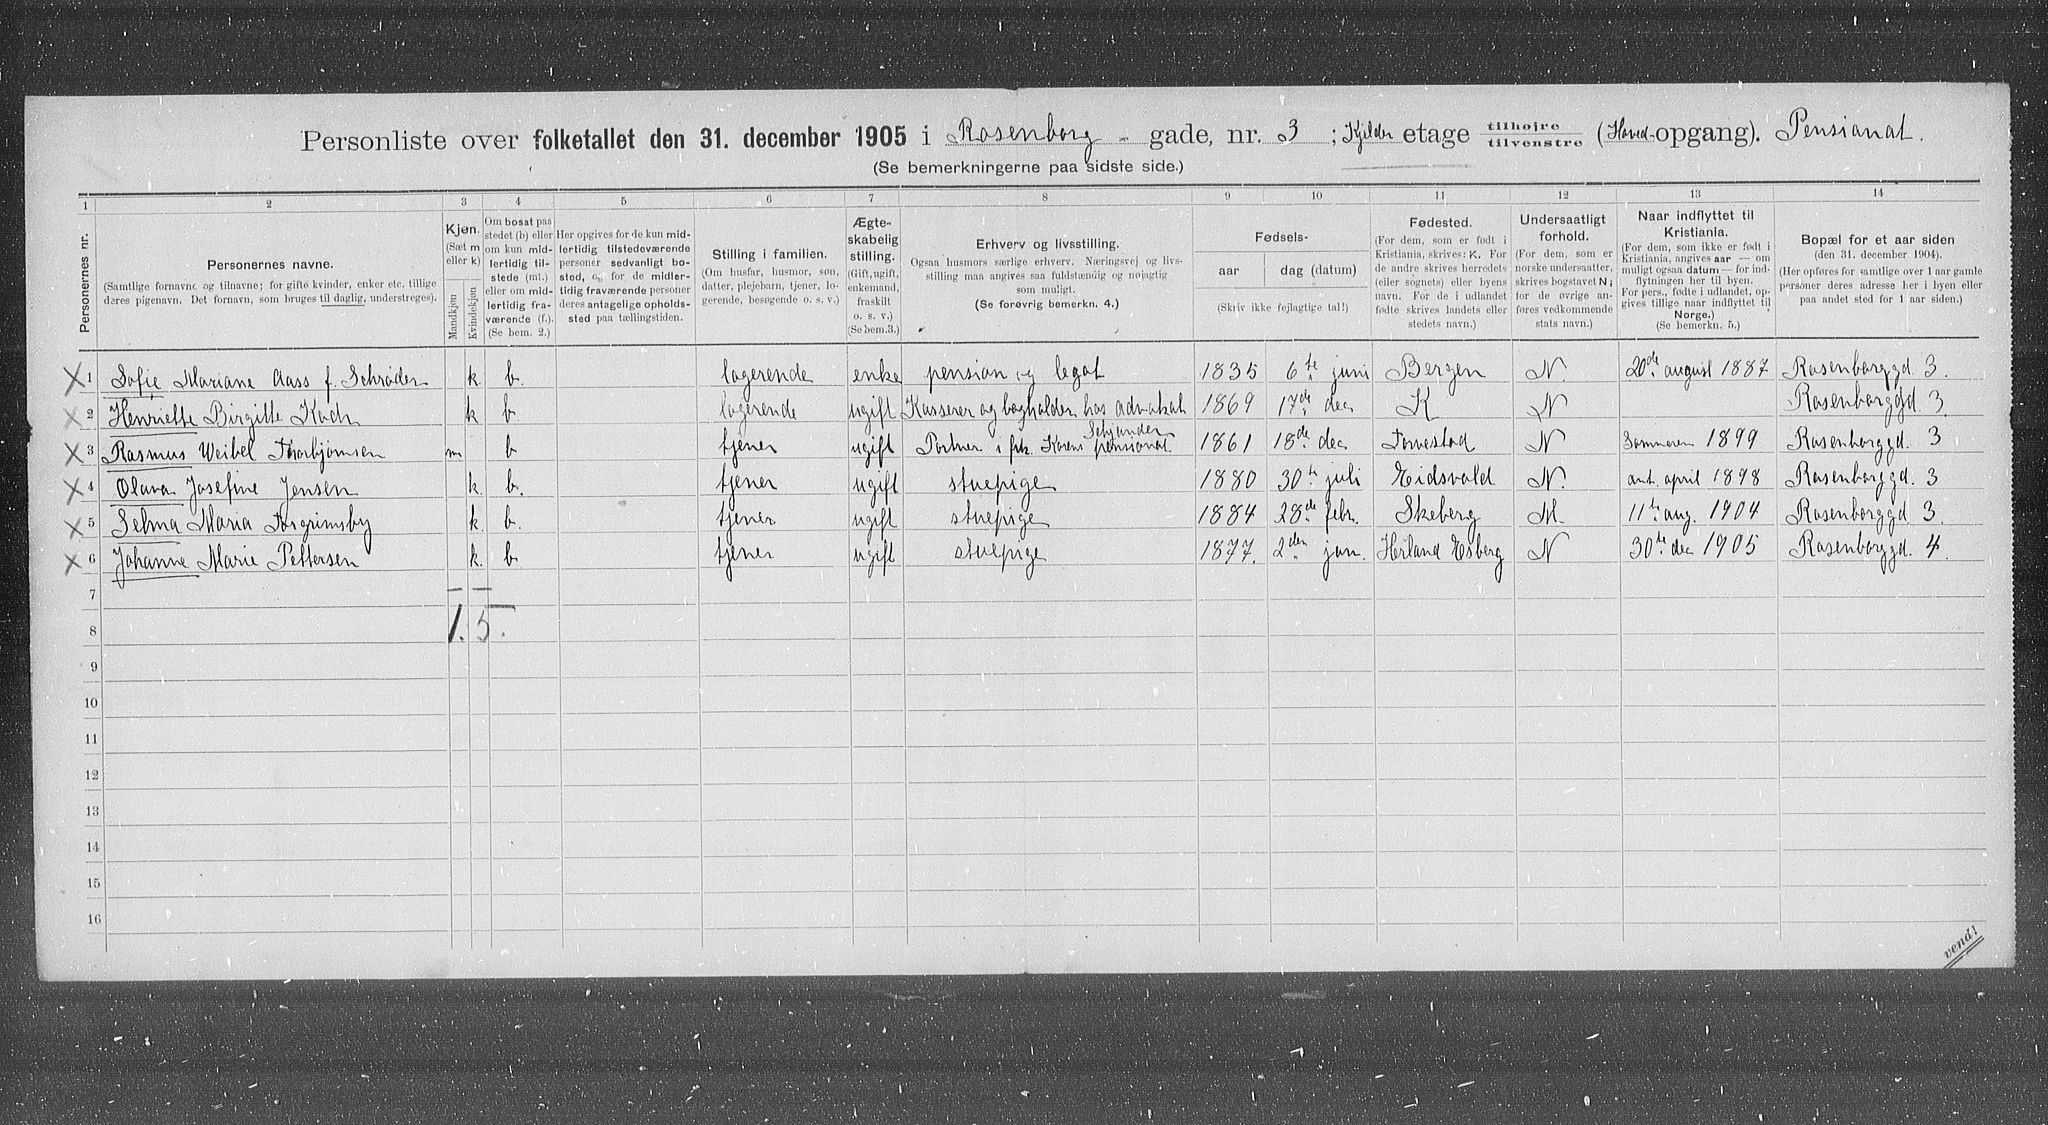 Personliste over folketallet den 31. december 1905 i Rosenborg - gade, nr. 3 ; Kjelder etage tilhøire tilvenstre (Hoved-opgang). Pensionat.
(Se bemerkningerne paa sidste side.)
1 2 3 4 5 6 7 8 9 10 11 12 13 14
Personernes nr.
Personernes navne.
(Samtlige fornavne og tilnavne; for gifte kvinder, enker etc. tillige deres pigenavn. Det fornavn, som bruges til daglig, understreges).
Kjøn.
(Sæt m eller k)
Mandkjøn
Kvindekjøn
Om bosat paa stedet (b) eller om kun midlertidig tilstede (mt.) eller om midlertidig fraværende (f.) (Se bem. 2.)
Her opgives for de kun midlertidig tilstedeværende personer sedvanligt bosted, og for de midlertidig fraværende personer deres antagelige opholdssted paa tællingstiden.
Stilling i familien.
(Om husfar, husmor, søn, datter, plejebarn, tjener, logerende, besøgende o. s. v.)
Ægteskabelig stilling.
(Gift, ugift, enkemand, fraskilt o. s. v.) (Se bem.3.)
Erhverv og livsstilling.
Ogsaa husmors særlige erhverv. Næringsvej og livsstilling maa angives saa fuldstændig og nøjagtig som muligt.
(Se forøvrig bemerkn. 4.)
Fødsels-
aar dag (datum)
(Skriv ikke fejlagtige tal!)
Fødested.
(For dem, som er født i Kristiania, skrives: K. For de andre skrives herredets (eller sognets) eller byens navn. For de i udlandet fødte skrives landets eller stedets navn.)
Undersaatligt forhold.
(For dem, som er norske undersaatter, skrives bogstavet N; for de øvrige anføres vedkommende stats navn.)
Naar indflyttet til Kristiania.
(For dem, som ikke er født i Kristiania, angives aar — om muligt ogsaa datum — for indflytningen her til byen. For pers., fødte i udlandet, opgives tillige naar indflyttet til Norge.)
(Se bemerkn. 5.)
Bopæl for et aar siden
(den 31. december 1904).
(Her opføres for samtlige over 1 aar gamle personer deres adresse her i byen eller paa andet sted for 1 aar siden.)
1 Sofie Mariane Aass f. Schrøder k. b. logerende enke pension og legat 1835 6te juni Bergen N. 20de august 1887 Rosenborggd 3.
2 Henriette Birgitte Koch k b logerende ugift Kasserer og bogholder hos advokat 1869 17de dec K N Rosenborggd. 3.
3 Rasmus Weibel Thorbjørnsen m b tjener ugift Portner i frk. Karens Schjander pensionat 1861 18de dec N Sommeren 1899 Rosenborggd. 3
4 Olava Josefine Jensen k. b. tjener ugift stuepige 1880 30te juli Eidsvold N. ant. april 1898 Rosenborggd. 3
5 Selma Maria Torgrimsby k. b. tjener ugift stuepige 1884 28de febr. Skeberg N. 11te aug. 1904 Rosenborggd. 3.
6 Johanne Marie Pettersen k. b. tjener ugift stuepige 1877. 2den jan. N 30te dec 1905 Rosenborggd. 4.
7
1. 5.
8
9
10
11
12
13
14
15
16
vend!